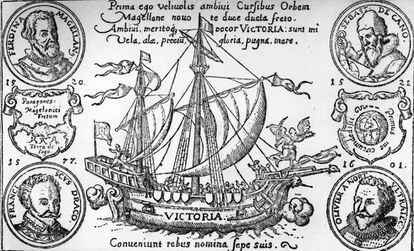 Prima ego Velivolis ambivi Cursibus Orbem
Magellane novo te duce ducta freto.
Ambivi, meritoq vocor VICTORIA: sunt mi
Vela, alæ, preciũ, gloria, pugna, mare.
FERDINA MAGELLANVS
SEBAST. DE CANO
15 20.
15 21
Magellanici
Fretum
Terra del
1577.
1601.
FRAN CVS DRACO
OLIVIER A NOORT
VICTORIA.
Conveniunt rebus nomina sepe suis.